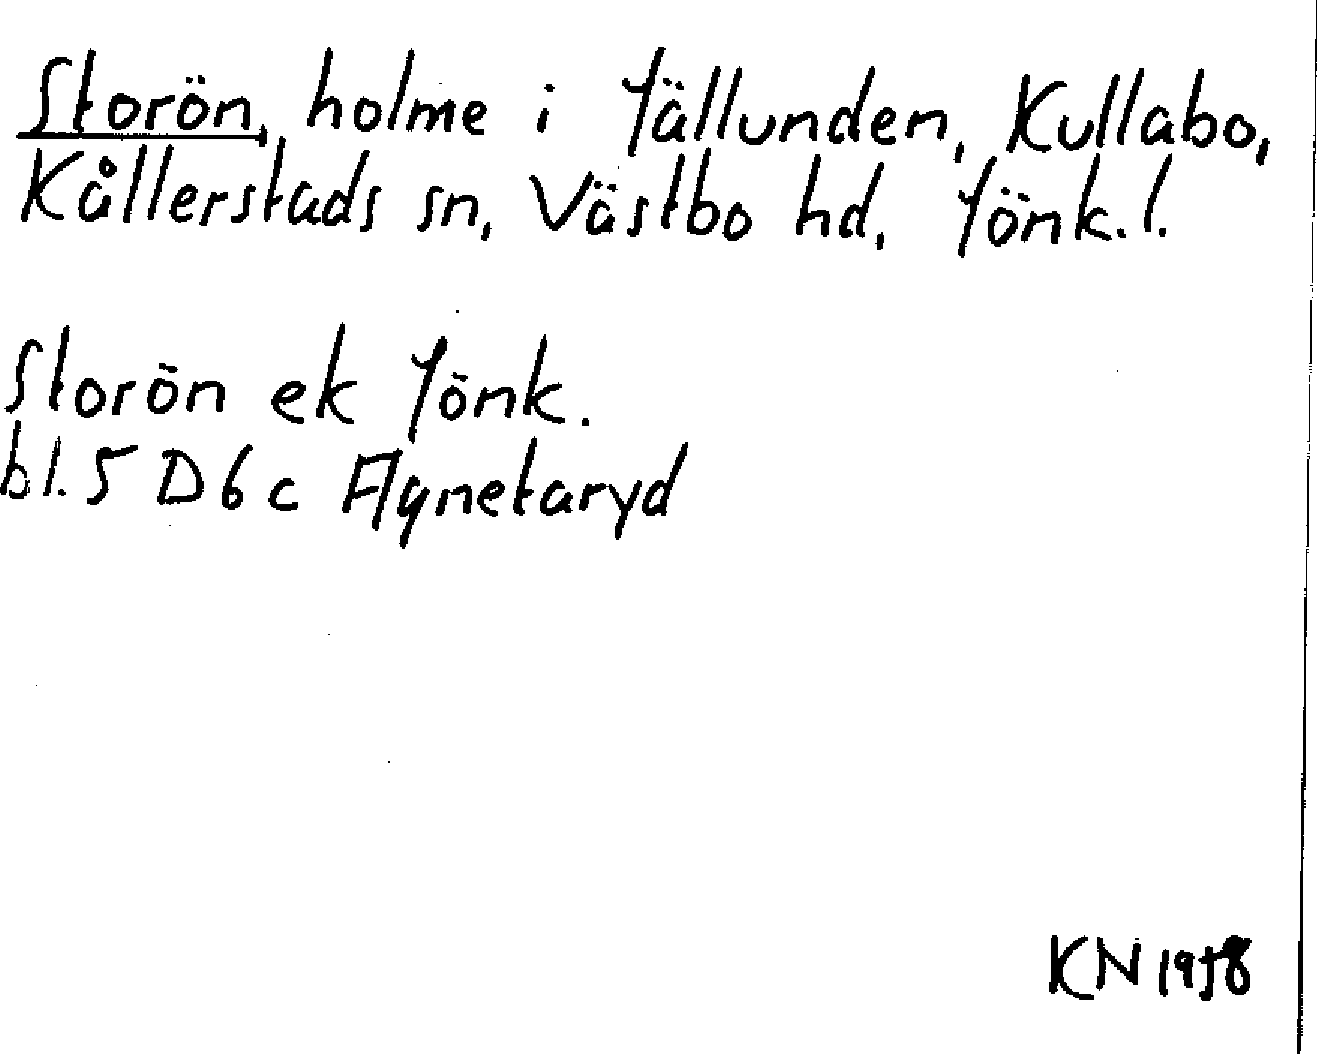 Storön, holme i Jällunden, Kullabo,
Kållerstads sn, Västbo hd, Jönk. l.
Storön ek Jönk.
bl. 5 D 6 c Agnetaryd
KN 1958